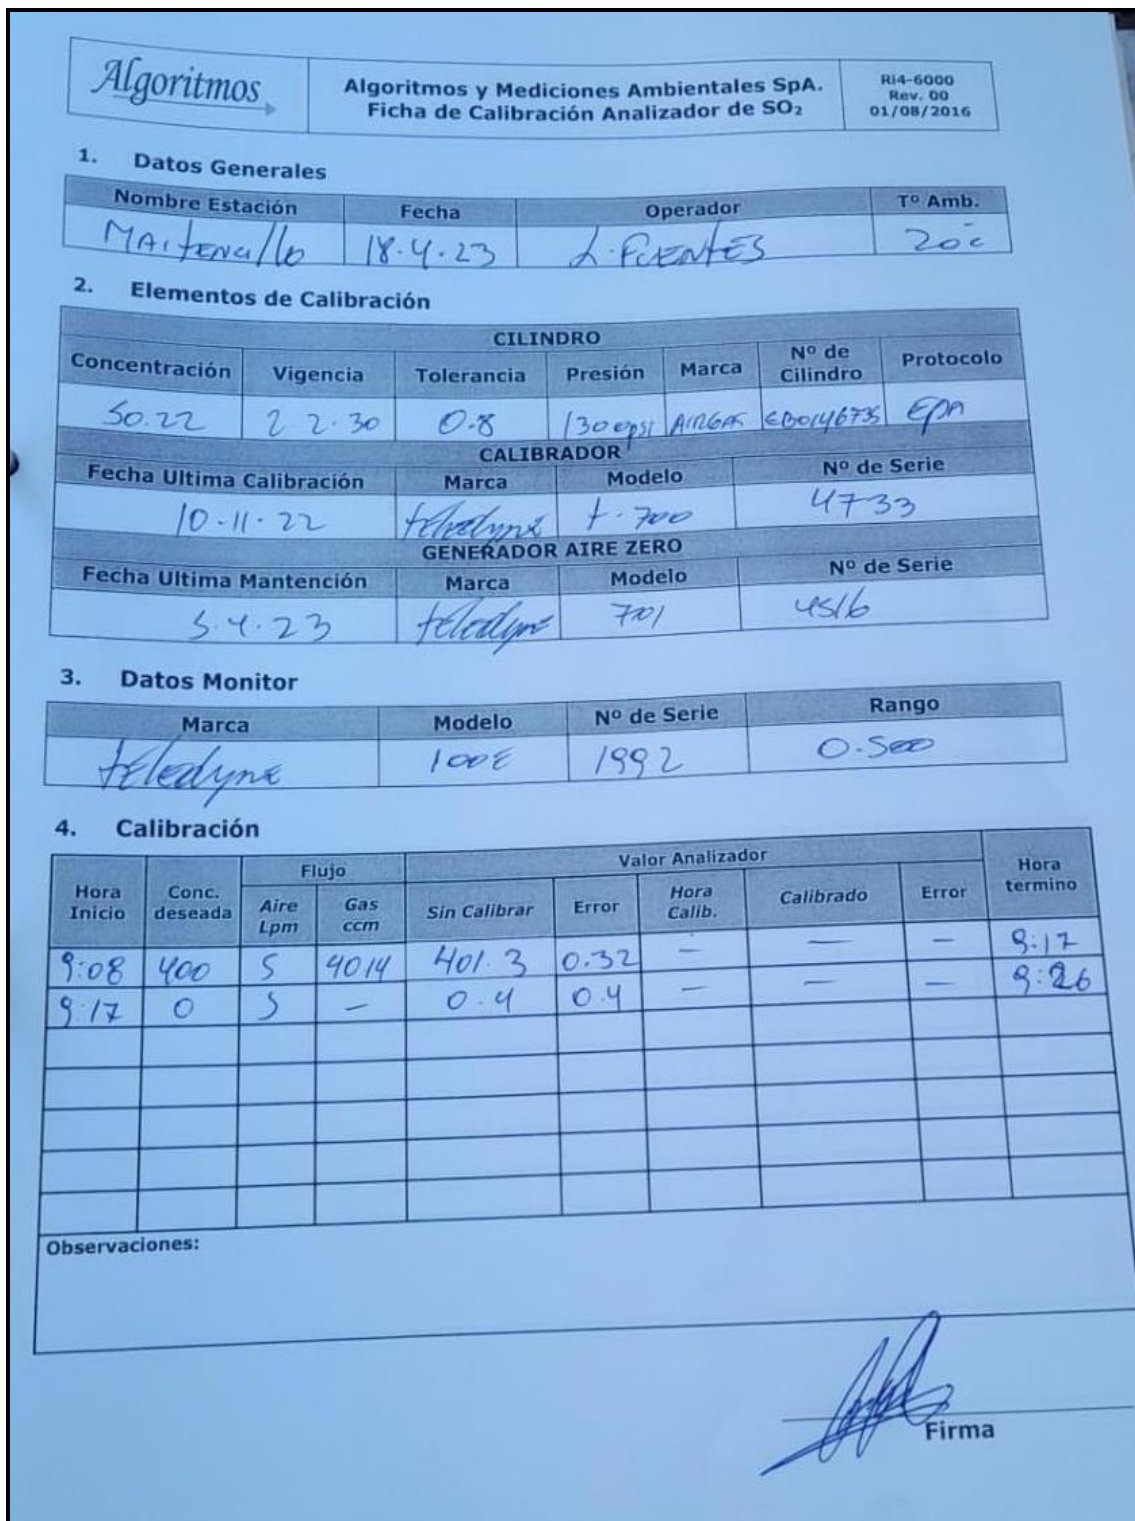 Algoritmos
Algoritmos y Mediciones Ambientales SpA.
Ficha de Calibración Analizador de SO₂
RI4-6000
Rev. 00
01/08/2016
1. Datos Generales
Nombre Estación Fecha Operador Tº Amb.
MAitencillo 18.4.23 L. FUENTES 20°c
2. Elementos de Calibración
CILINDRO
Concentración Vigencia Tolerancia Presión Marca Nº de Cilindro Protocolo
50.22 2 2.30 0.8 1300psi AIRGAS EB0146735 EPA
CALIBRADOR
Fecha Ultima Calibración Marca Modelo Nº de Serie
10.11.22 teledyne t.700 4733
GENERADOR AIRE ZERO
Fecha Ultima Mantención Marca Modelo Nº de Serie
5.4.23 teledyne 701 4516
3. Datos Monitor
Marca Modelo Nº de Serie Rango
teledyne 100E 1992 0.500
4. Calibración
Hora Inicio Conc. deseada Flujo Valor Analizador Hora termino
Aire Lpm Gas ccm Sin Calibrar Error Hora Calib. Calibrado Error
9:08 400 5 4014 401.3 0.32 — — — 9:17
9:17 0 5 — 0.4 0.4 — — — 9:26
Observaciones:
Firma